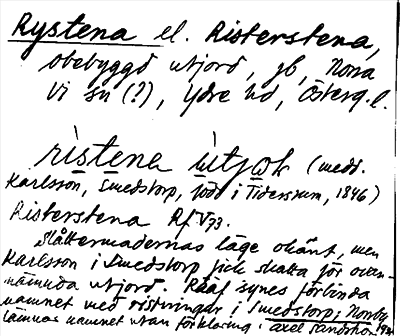 Rystena el. Risterstena,
obebyggd utjord, jb, Norra
Vi sn (?), Ydre hd, Österg. l.
ristena ùtjoɷ̈ (medd.
Karlsson, Smedstorp, född i Tidersrum, 1846)
Risterstena Rf V 73.
Slåttermadernas läge okänt, men
Karlsson i Smedstorp fick skatta för ovan-
nämnda utjord. Rääf synes förbinda
namnet med ristningar i Smedstorp, Norby
lämnas namnet utan förklaring i Axel